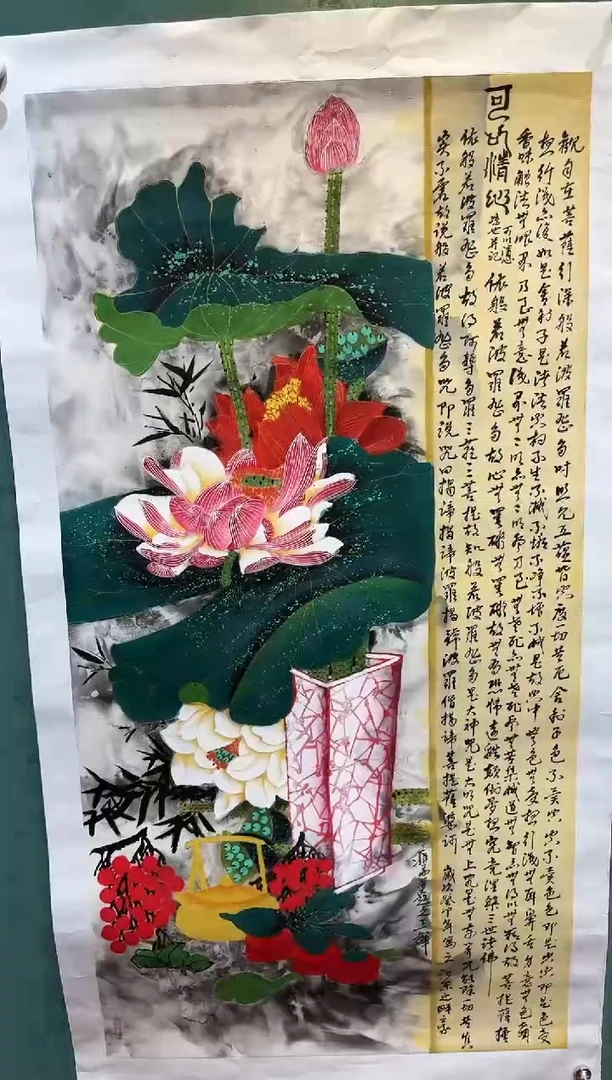 觀自在菩薩行深般若波羅蜜多時照見五蘊皆空度一切苦厄舍利子色不異空空不異色色即是空空即是色受
想行識亦復如是舍利子是諸法空相不生不滅不垢不淨不增不減是故空中無色無受想行識無耳鼻舌身意無色聲
香味觸法無眼界乃至無意識界無無明亦無無明盡乃至無老死亦無老死盡無苦集滅道無智亦無得以無所得故菩提薩埵
依般若波羅蜜多故心無罣礙無罣礙故無有恐怖遠離顛倒夢想究竟涅槃三世諸佛
依般若波羅蜜多故得阿耨多羅三藐三菩提故知般若波羅蜜多是大神咒是大明咒是無上咒是無等等咒能除一切苦真
實不虛故說般若波羅蜜多咒即說咒曰揭諦揭諦波羅揭諦波羅僧揭諦菩提薩婆訶 歲次